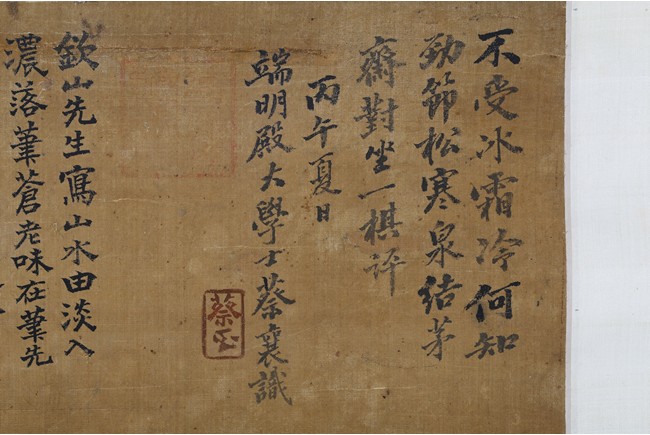 不受冰霜冷何知
勁節松寒泉結茅
齋對坐一棋評
丙午夏日
端明殿大學士蔡襄識
蔡
欽山先生寫山水由淡入
濃落筆蒼老味在筆先